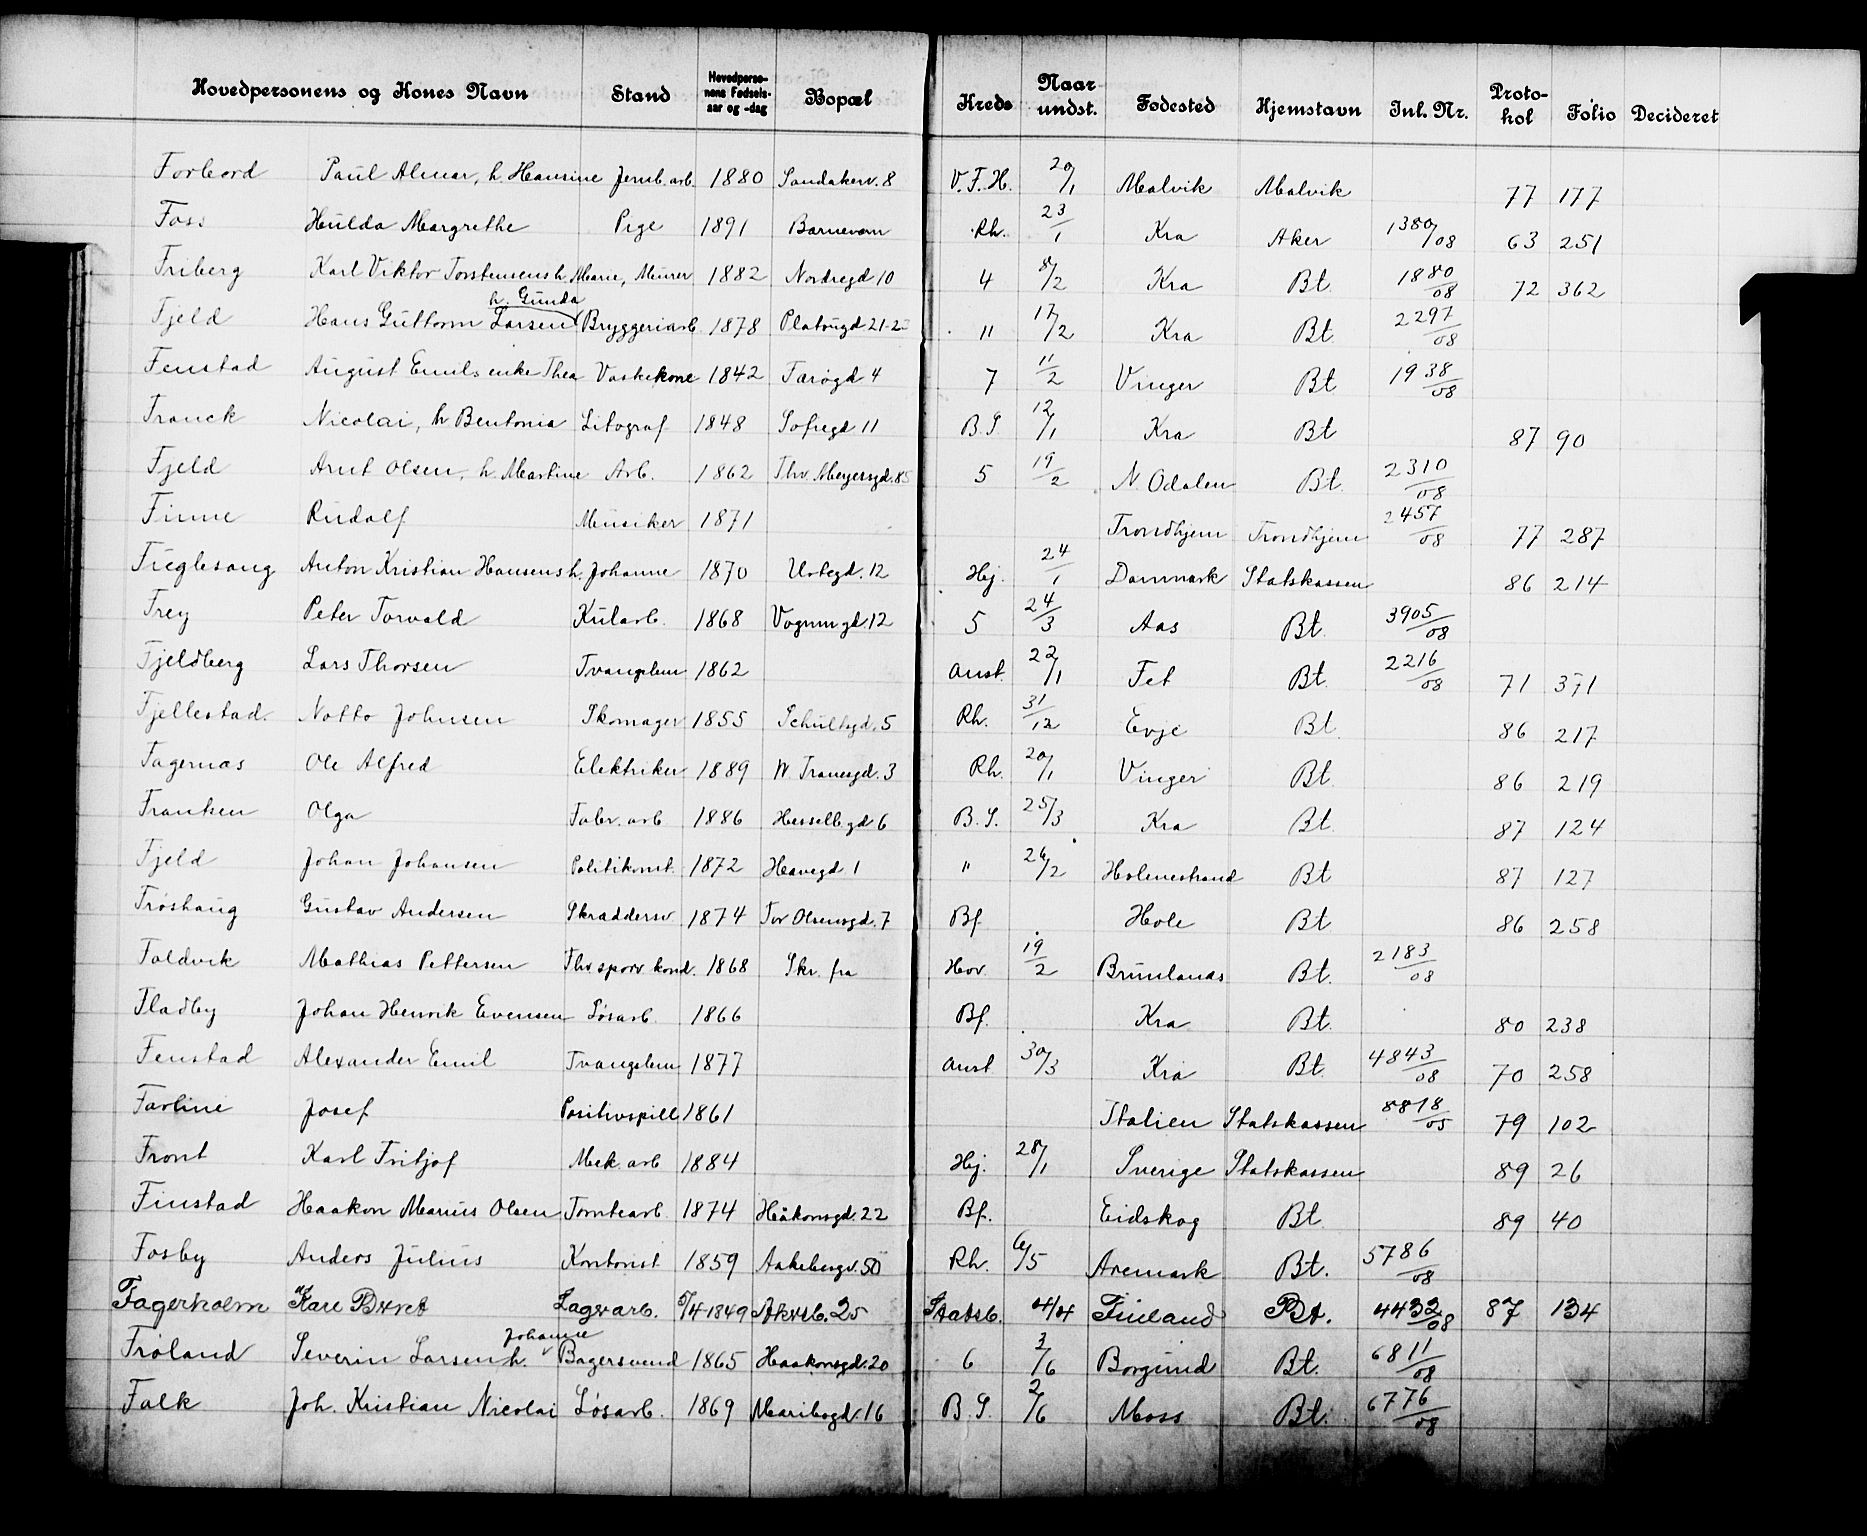 Hovedpersonens og Kones Navn Stand Hovedpersonens Fødselsaar og -dag Bopæl Kreds Naar undst. Fødested Hjemstavn Inl. Nr. Protokol Folio Decideret
Forbord Paul Almar, h. Hansine Jernb. arb. 1880 Sandakerv. 8 V. F. H. 20/1 Malvik Malvik 77 177
Foss Hulda Margrethe Pige 1891 Barnevern Rh. 23/1 Kra Aker 1380/08 63 251
Friberg Karl Viktor Torstensens h. Marie, Murer 1882 Nordregd 10 4 8/2 Kra Bt. 1880/08 72 362
Fjeld Hans Guttorm Larsen h. Gunda Bryggeriarb. 1878 Platougd 21-2 11 17/2 Kra Bt. 2297/08
Fenstad August Emils enke Thea Vaskekone 1842 Farøgd 4 7 11/2 Vinger Bt. 1938/08
Franck Nicolai, h Bentonia Litograf 1848 Sofiegd 11 B. S. 12/1 Kra Bt 87 90
Fjeld Arnt Olsen, h. Martine Arb. 1862 Thv. Meyersgd. 85 5 19/2 N. Odalen Bt. 2310/08
Finne Rudolf Musiker 1871 Trondhjem Trondhjem 2457/08 77 287
Fuglesang Anton Kristian Hansens h. Johanne 1870 Urtegd. 12 Hej. 24/1 Danmark Statskassen 86 214
Frey Peter Torvald Kularb. 1868 Vognmgd. 12 5 24/3 Aas Bt. 3905/08
Fjeldberg Lars Thorsen Tvangslem 1862 Anst. 22/1 Fet Bt. 2216/08 71 371
Fjellestad. Notto Johnsen Skomager 1855 Schultzgd. 5 Rh. 31/12 Evje Bt. 86 217
Fagernæs Ole Alfred Elektriker 1889 W Tranesgd. 3 Rh. 20/1 Vinger Bt. 86 219
Franken Olga Fabr. arb 1886 Hesselb.gd 6 B. S. 25/3 Kra Bt. 87 124
Fjeld Johan Johansen Politikonst. 1872 Havegd 1 " 26/2 Holmestrand Bt 87 127
Frøshaug Gustav Andersen Skræddersv. 1874 Tor Olsensgd. 7 Bf. Hole Bt. 86 258
Foldvik Mathias Pettersen Thv. sporv. kond. 1868 Skr. fra Hov. 19/2 Brunlanæs Bt. 2183/08
Fladby Johan Henrik Evensen Løsarb. 1866 Bf. Kra Bt. 80 238
Fenstad Alexander Emil Tvangslem 1877 Anst 30/3 Kra Bt. 4843/08 70 258
Farline Josef Positivspill 1861 Italien Statskassen 8818/05 79 102
Front Karl Fritjof Mek. arb 1884 Hej. 28/1 Sverige Statskassen 89 26
Finstad Haakon Marius Olsen Tomtearb. 1874 Håkonsgd. 22 Bf. Eidskog Bt. 89 40
Fosby Anders Julius Kontorist 1859 Aakebergv. 50 Rh. 6/5 Aremark Bt. 5786/08
Fagerholm Kare Lagerarb. 1849 25 Statsb. 4/4 Finland Bt. 4432/08 87 134
Frøland Severin Larsen h. Johanne Bagersvend 1865 Haakonsgd. 20 6 3/6 Borgund Bt. 6811/08
Falk Joh. Kristian Nicolai Løsarb. 1869 Maribogd. 16 B. S. 2/6 Moss Bt. 6776/08